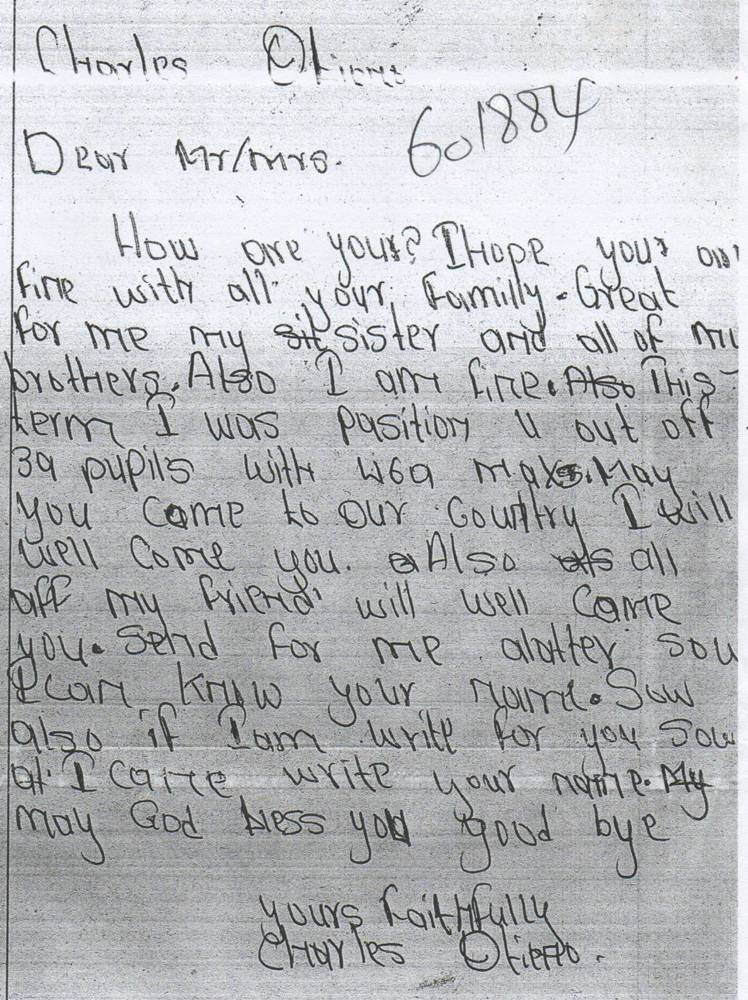 Charles Otieno
Dear Mr/mrs. 601884
How are your? I Hope your are
fine with all your Familly. Great
for me my sister and all of my
brothers. Also I am fine. Also This
term I was Position 4 out off
39 pupils with 469 maks. May
you come to our Country I will
well come you. Also all
off my friend will well come
you. Send for me alatter sow
I can know your name. Sow
also if I am write for you sow
at I cane write your name. My
may God bless you good bye
yours faithfully
Charles Otieno.